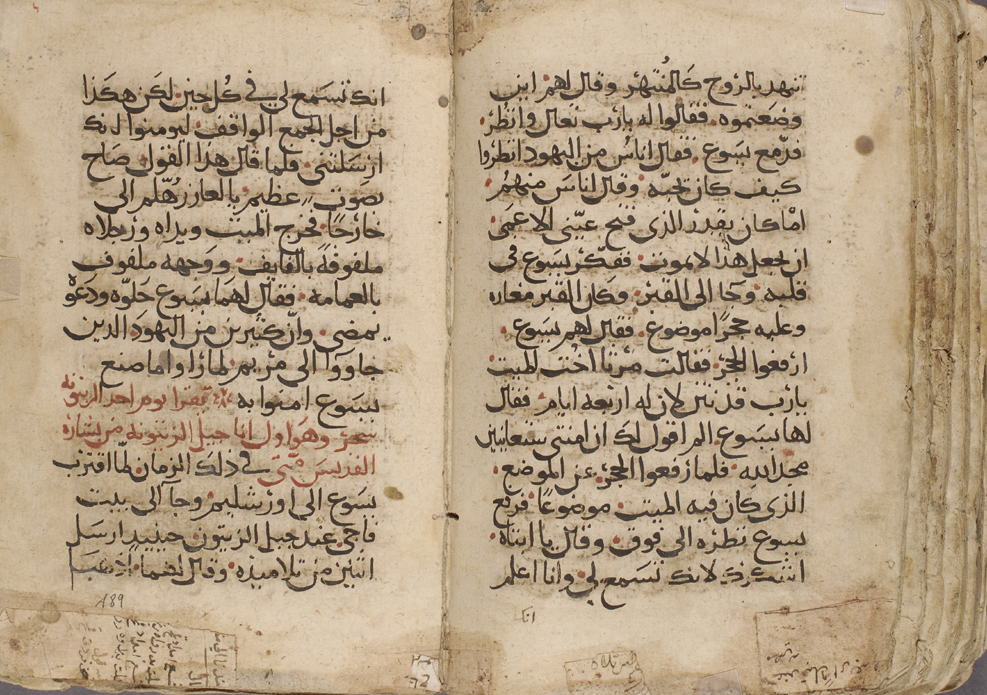 تنهد بالروح كالمنتهر وقال لهم اين
وضعتموه فقالوا له يارب تعال وانظر
فدمع يسوع فقال اناس من اليهود انظروا
كيف كان تحبه وقال اناس منهم
اما كان يقدر الذى فتح عيني الاعمى
ان يجعل هذا لا يموت ففكر يسوع فى
قلبه وجا الى القبر وكان القبر مغاره
وعليه حجرا موضوع فقال لهم يسوع
ارفعوا الحجر فقالت مرتا اخت الميت
يارب قد نتن لان له اربعه ايام فقال
لها يسوع الم اقول لك ان امنتي ستعاينين
مجد الله فلما رفعوا الحجر عن الموضع
الذى كان فيه الميت موضوعا فرفع
يسوع نظره الى فوق وقال يا ابتاه
اشكرك لانك تسمع لي وانا اعلم
انك
انك تسمع لي في كل حين لكن هكذا
من اجل الجمع الواقف ليومنوا انك
ارسلتني فلما قال هذا القول صاح
بصوت عظيم يا لعازر هلم الى
خارجا فخرج الميت ويداه ورجلاه
ملفوفة بالفايف ووجهه ملفوف
بالعمامه فقال لهما يسوع حلوه ودعوه
يمضى وان كثيرين من اليهود الدين
جاووا الى مريم لما راوا ما صنع
يسوع امنوا به يقرا يوم احد الزيتونه
سحر وهو اول اناجيل الزيتونه من بشاره
القديس متى في دلك الزمان لما اقترب
يسوع الى اورشليم وجا الى بيت
فاجي عند جبل الزيتون حينيد ارسل
اتنين من تلاميذه وقال لهما اذهبا
189